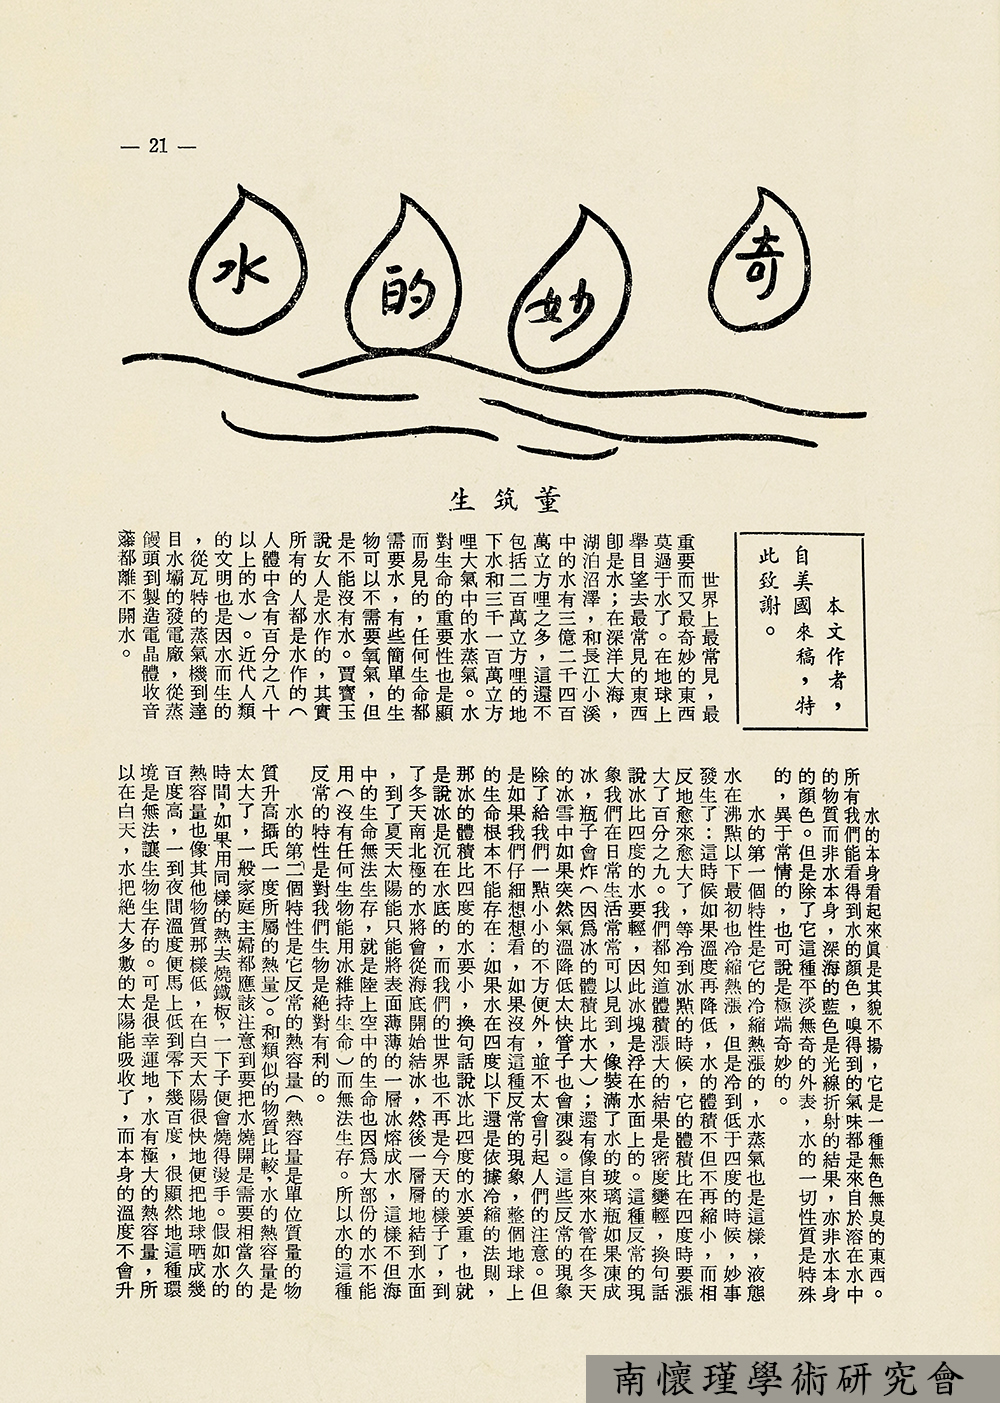 — 21 —
奇妙的水
董筑生
本文作者，
自美國來稿，特
此致謝。
世界上最常見，最
重要而又最奇妙的東西
莫過于水了。在地球上
舉目望去最常見的東西
卽是水；在深洋大海，
湖泊沼澤，和長江小溪
中的水有三億二千四百
萬立方哩之多，這還不
包括二百萬立方哩的地
下水和三千一百萬立方
哩大氣中的水蒸氣。水
對生命的重要性也是顯
而易見的，任何生命都
需要水，有些簡單的生
物可以不需要氧氣，但
是不能沒有水。賈寶玉
說女人是水作的，其實
所有的人都是水作的（
人體中含有百分之八十
以上的水）。近代人類
的文明也是因水而生的
，從瓦特的蒸氣機到達
目水壩的發電廠，從蒸
饅頭到製造電晶體收音
都離不開水。
水的本身看起來眞是其貌不揚，它是一種無色無臭的東西。
所有我們能看得到水的顏色，嗅得到的氣味都是來自於溶在水中
的物質而非水本身，深海的藍色是光線折射的結果，亦非水本身
的顏色。但是除了它這種平淡無奇的外表，水的一切性質是特殊
的，異于常情的，也可說是極端奇妙的。
水的第一個特性是它的冷縮熱漲的，水蒸氣也是這樣，液態
水在沸點以下最初也冷縮熱漲，但是冷到低于四度的時候，妙事
發生了：這時候如果溫度再降低，水的體積不但不再縮小，而相
反地愈來愈大了，等冷到冰點的時候，它的體積比在四度時要漲
大了百分之九。我們都知道體積漲大的結果是密度變輕，換句話
說冰比四度的水要輕，因此冰塊是浮在水面上的。這種反常的現
象我們在日常生活常常可以見到，像裝滿了水的玻璃瓶如果凍成
冰，瓶子會炸（因爲冰的體積比水大）；還有像自來水管在冬天
的冰雪中如果突然氣溫降低太快管子也會凍裂。這些反常的現象
除了給我們一點小小的不方便外，並不太會引起人們的注意。但
是如果我們仔細想想看，如果沒有這種反常的現象，整個地球上
的生命根本不能存在：如果水在四度以下還是依據冷縮的法則，
那冰的體積比四度的水要小，換句話說冰比四度的水要重，也就
是說冰是沉在水底的，而我們的世界也不再是今天的樣子了，到
了冬天南北極的水將會從海底開始結冰，然後一層層地結到水面
，到了夏天太陽能只能將表面薄薄的一層冰熔成水，這樣不但海
中的生命無法生存，就是陸上空中的生命也因爲大部份的水不能
用（沒有任何生物能用冰維持生命）而無法生存。所以水的這種
反常的特性是對我們生物是絕對有利的。
水的第二個特性是它反常的熱容量（熱容量是單位質量的物
質升高攝氏一度所屬的熱量）。和類似的物質比較，水的熱容量是
太大了，一般家庭主婦都應該注意到要把水燒開是需要相當久的
時間，如果用同樣的熱去燒鐵板，一下子便會燒得燙手。假如水的
熱容量也像其他物質那樣低，在白天太陽很快地便把地球晒成幾
百度高，一到夜間溫度便馬上低到零下幾百度，很顯然地這種環
境是無法讓生物生存的。可是很幸運地，水有極大的熱容量，所
以在白天，水把絶大多數的太陽能吸收了，而本身的溫度不會升
南懷瑾學術研究會